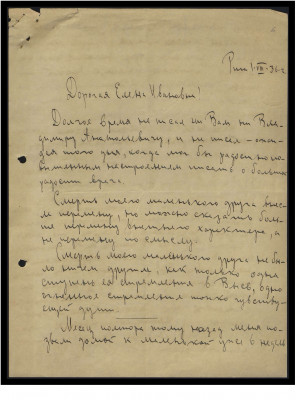 Рига 1-VII-36 г.
Дорогая Елена Ивановна!
Долгое время не писал ни Вам ни Вла-
димиру Анатольевичу, и не писал -
того дня, когда мог бы радостного
настроением писать о большой
радости
Смерть моего миленького друга внес-
ла перемену, но можно сказать боль-
ше перемену внешнего характера, а
не перемену по смыслу.
Смерть моего маленького друга не бы-
ло ничем другим, как только одна
ступень её стремления в Высь, одно
стремление тонко чувствую-
щей души.
Месяц полтора тому назад меня по-
звали домой к маленькой